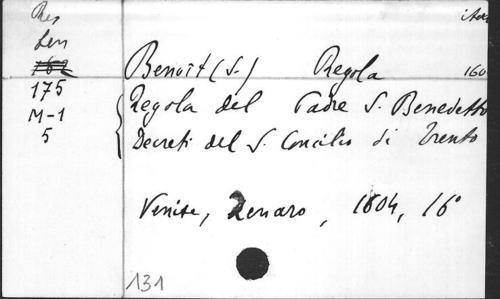 Res
Len
162
175
M-1
5
Benoît (S.) Regola 160
Regola del Padre S. Benedetto
Decreti del S. Concilio di Trento
Venise, Zenaro, 1604, 16°
131